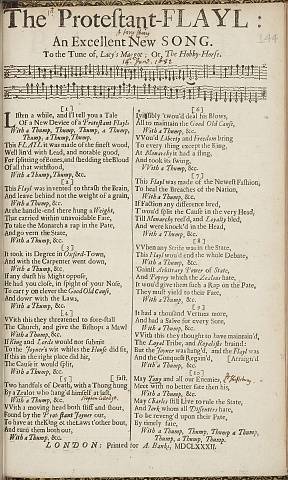 The Protestant-FLAYL:
An Excellent New SONG.
To the Tune of, Lacy's Maggot; Or, The Hobby-Horse.
144
[1]
Listen a while, and I'l tell you a Tale
Of a New Device of a Protestant Flayl:
With a Thump, Thump, Thump, a Thump,
Thump, a Thump, Thump,
This FLAYL it was made of the finest wood,
Well lin'd with Lead, and notable good,
For splitting of Bones, and shedding the Blood
Of all that withstood,
With a Thump, Thump, &c.
[2]
This Flayl was invented to thrash the Brain,
And leave behind not the weight of a grain,
With a Thump, &c.
At the handle-end there hung a Weight,
That carried within unavoidable Fate,
To take the Monarch a rap in the Pate,
And govern the State,
With a Thump, &c.
[3]
It took its Degree in Oxford-Town,
And with the Carpenter went down,
With a Thump, &c.
If any durst his Might oppose,
He had you close, in spight of your Nose,
To carry on clever the Good Old Cause,
And down with the Laws,
With a Thump, &c.
[4]
With this they threatned to fore-stall
The Church, and give the Bishops a Mawl
With a Thump, &c.
If King and Lords would not submit
To the Joyner's wit whilst the House did sit,
If this in the right place did hit,
The Cause it would split,
With a Thump, &c.
[5]
Two handfuls of Death, with a Thong hung fast,
By a Zealot who hang'd himself at last,
With a Thump, &c.
With a moving head both stiff and stout,
Found by the Protestant Joyner out,
To have at the King & the Laws t'other bout,
And turn them both out,
With a Thump, &c.
[6]
Invisibly 'twou'd deal his Blows,
All to maintain the Good Old Cause,
With a Thump, &c.
Wou'd Liberty and Freedom bring
To every thing except the King.
At Monarchy it had a fling,
And took its swing,
With a Thump, &c.
[7]
This Flayl was made of the Newest Fashion,
To heal the Breaches of the Nation,
With a Thump, &c.
If Faction any difference bred,
T'would split the Cause in the very Head,
Till Monarchy reel'd, and Loyalty bled,
And were knock'd in the Head,
With a Thump, &c.
[8]
When any Strife was in the State,
This Flayl wou'd end the whole Debate,
With a Thump, &c.
'Gainst Arbitrary Power of State,
And Popery which the Zealous hate,
It would give them such a Rap on the Pate,
They must yield to their Fate,
With a Thump, &c.
[9]
It had a thousand Vertues more,
And had a Salve for every Sore,
With a Thump, &c.
With this they thought to have maintain'd,
The Loyal Tribe, and Royalists brain'd:
But the Joyner was hang'd, and the Flayl was
Arraign'd
And the Conquest Regain'd,
With a Thump, &c.
[10]
May Tony and all our Enemies,
Meet with no better fate than his,
With a Thump, &c.
May Charles still Live to rule the State,
And York whom all Dissenters hate,
To be reveng'd upon their Pate,
By timely fate,
With a Thump, Thump, Thump a Thump,
Thump, a Thump, Thump.
LONDON: Printed for A. Banks, MDCLXXXII.